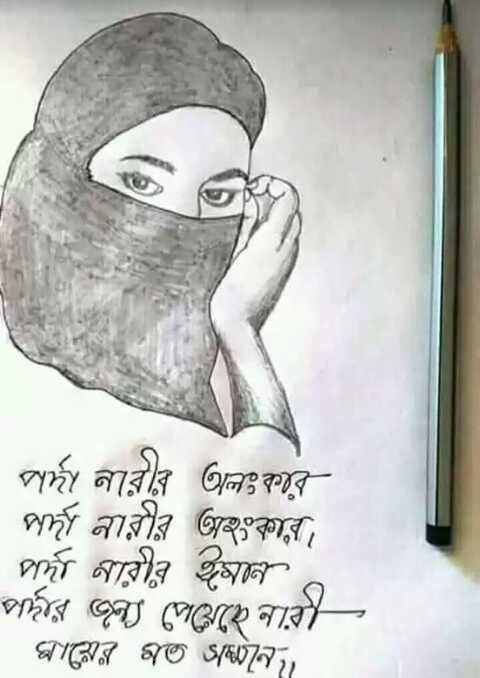 পর্দা নারীর অলংকার
পর্দা নারীর অহংকার,
পর্দা নারীর ঈমান
পর্দার জন্য পেয়েছে নারী
মায়ের মত সম্মান,,